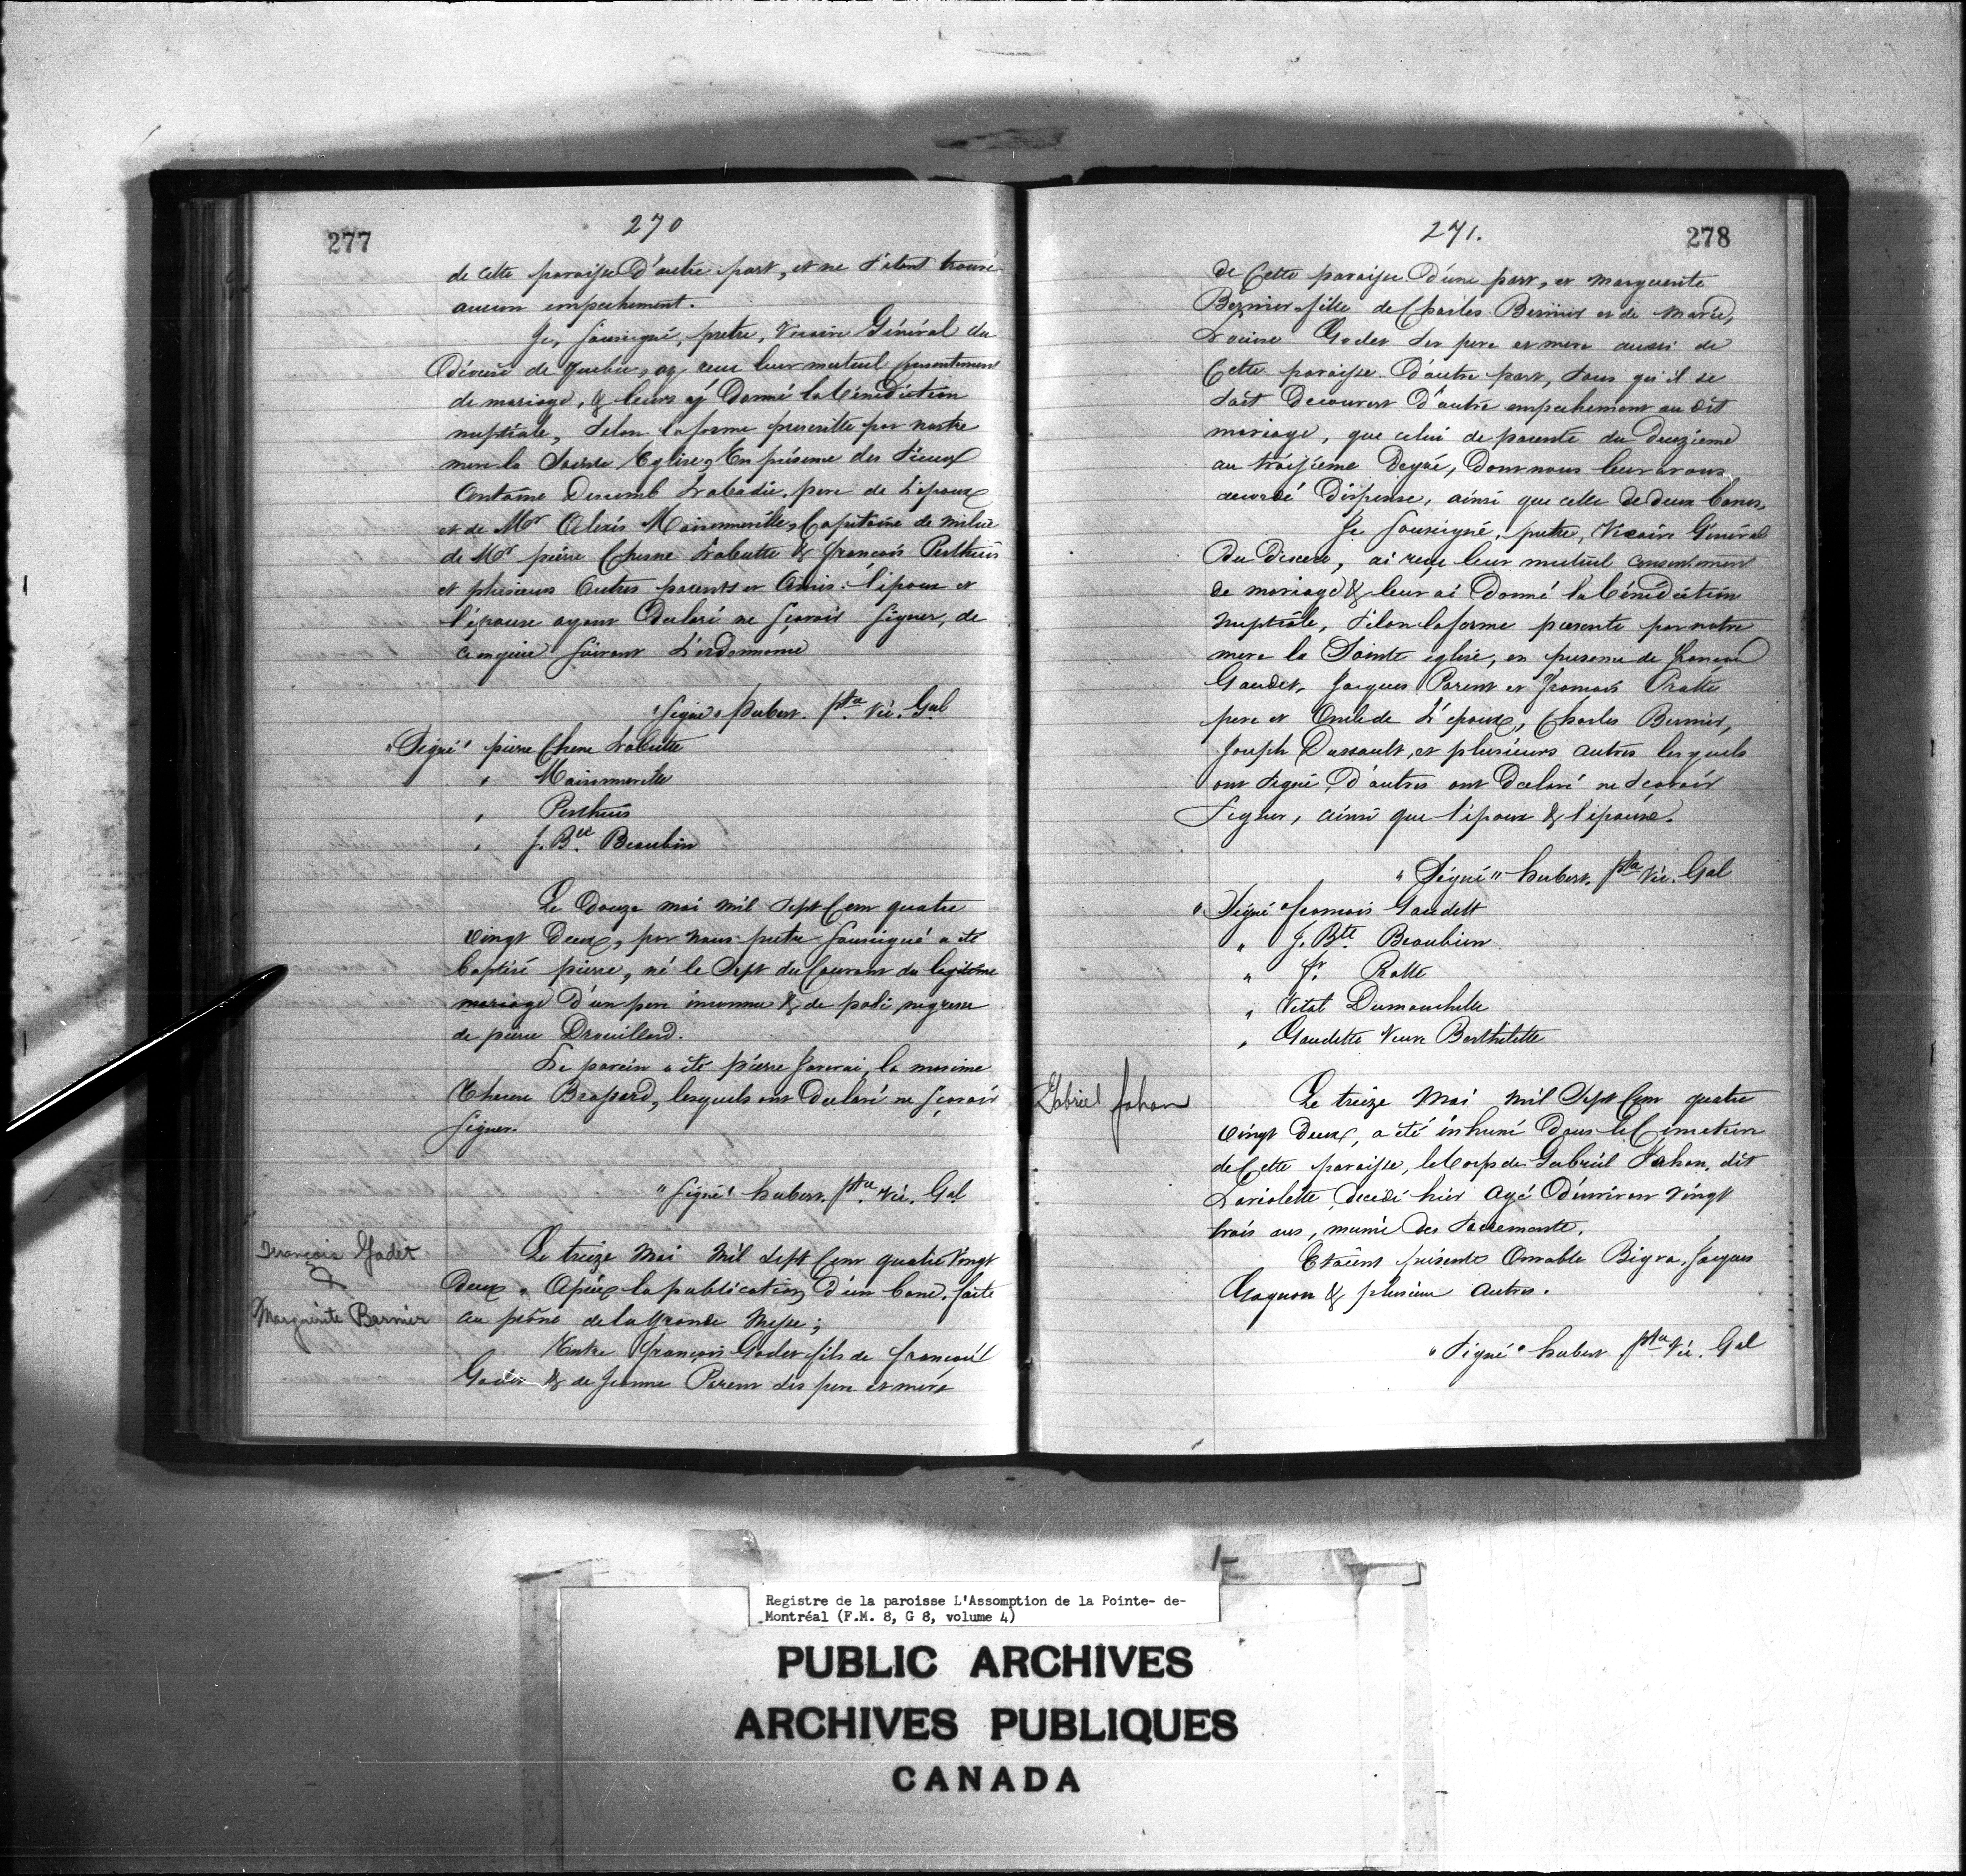 277
270
de cette paroisse D'autre part, et ne s'etant trouvé
aucun empechement.
Je, soussigné, pretre, Vicaire Général du
Diocese de Quebec, ay recu leur mutuel consentement
de mariage, & leurs ay Donné la bénédiction
nuptiale, selon la forme prescritte par nostre
mere la Sainte Eglise, En présence des Sieurs
Antoine Descomb Labadie, pere de L'epoux
et de Mr Alexis Maisonneuille, Capitaine de milice
de Mr pierre Chesne Labutte & françois Pesthuis
et plusieurs Autres parents et Amis. l'epoux et
l'épouse ayant Declaré ne sçavoir signer, de
ce enquis suivant L'ordonnance
"signé" hubert. ptre Vic. Gal
"Signé" pierre Chene Labutte
" Maisonneuille
" Pesthuis
" J. Bte Beaubien
Le Douze mai mil Sept Cent quatre
vingt Deux, par nous pretre soussigné a été
baptisé pierre, né le Sept du Courant du legitime
mariage d'un pere inconnu & de negresse
de pierre Drouillard.
Le parein a été pierre la mareine
Therese lesquels ont Declaré ne sçavoir
signer.
"signé" hubert. ptre Vic. Gal
François Godet
&
Marguerite Bernier
Le treize Mai Mil Sept Cent quatre Vingt
Deux, Après la publication D'un banc, faite
au prône de la grande Messe;
Entre françois Godet fils de françois
Godet & de Jeanne Parent des pere et mere
271.
278
de Cette paroisse D'une part, et marguerite
Bernier fille de Charles Bernier et de Marie,
Louise Godet ses pere et mere aussi de
Cette paroisse D'autre part, sans qu'il se
soit Decouvert D'autre empechement au dit
mariage, que celui de parenté du Deuzieme
au troisieme Degré, Dont nous leur avons
accordé Dispense, ainsi que celle de deux bancs,
Je soussigné, pretre, Vicaire Général
Du Diocese, ai reçu leur mutuel consentement
de mariage & leur ai Donné la bénédiction
nuptiale, selon la forme prescrite par notre
mere la Sainte eglise, en presence de francois
Gaudet, Jacques Parent et francois Pratte
pere et Oncle de L'epoux, Charles Bernier,
Joseph Dassault, et plusieurs autres lesquels
ont signé, D'autres ont Declaré ne scavoir
signer, ainsi que l'epoux & l'épouse.
"Signé" hubert. ptre Vic. Gal
"Signé" francois Gaudett
" J. Bte Beaubien
" fr. Ratte
" Vital Dumouchelle
" Gaudette Veuve Berthelette
Gabriel Jahan
Le treize Mai Mil Sept Cent quatre
vingt Deux, a été inhumé Dans le Cimetiere
de Cette paroisse, le Corps de Gabriel Jahan, dit
Laviolette Decedé hier Agé D'environ Vingt
trois ans, munie des Sacremants.
Etaient présents Bigra, Jacques
Gagnon & plusieur Autres.
"Signé" hubert ptre Vic. Gal
Registre de la paroisse L'Assomption de la Pointe- de-
Montréal (F.M. 8, G 8, volume 4)
PUBLIC ARCHIVES
ARCHIVES PUBLIQUES
CANADA